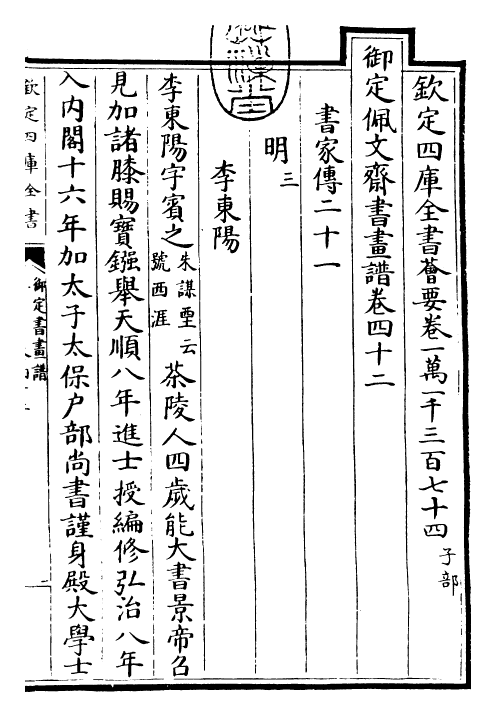 欽定四庫全書薈要卷一萬一千三百七十四 子部
御定佩文齋書畫譜卷四十二
書家傳二十一
明三
李東陽
李東陽字賓之朱謀垔云號西涯茶陵人四歲能大書景帝召
見加諸膝賜寶鏹舉天順八年進士授編修弘治八年
入內閣十六年加太子太保戶部尚書謹身殿大學士
欽定四庫全書
御定書畫譜